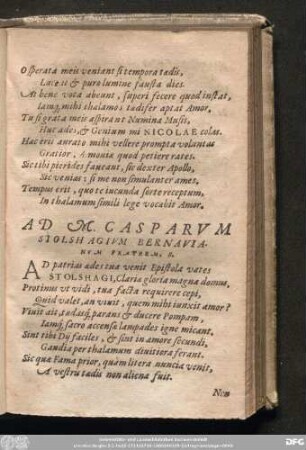 O sperata meis veniant si tempora tædis,
Luceat & puro lumine fausta dies.
At bene vota abeunt, superi fecere quod instat,
Iamq; mihi thalamos tædifer aptat Amor.
Tu si grata meis aspirant Numina Musis,
Huc ades, & Genium mi NICOLAE colas.
Hac eris aurato mihi vellere prompta voluntas
Gratior, Æmonia quod petiere rates.
Sic tibi pierides faueant, sic dexter Apollo,
Sic venias; si me non simulanter ames.
Tempus erit, quo te iucunda sorte receptum,
In thalamum simili lege vocabit Amor.
AD M. CASPARVM
STOLSHAGIVM BERNAVIA-
NVM FRATREM, N.
AD patrias ades tua venit Epistola vates
STOLSHAGI, Clariæ gloria magna domus,
Protinus vt vidi, tua facta requirere cœpi,
Quid valet, an viuit, quem mihi iunxit amor?
Viuit ait, tædasq; parans & ducere Pompam,
Iamq; sacro accensa lampades igne micant.
Sint tibi Dij faciles, & sint in amore secundi,
Gaudia per thalamum diuitiora ferant.
Sic quæ Fama prior, quàm litera nuncia venit,
A vestris tædis non aliena fuit.
Nam